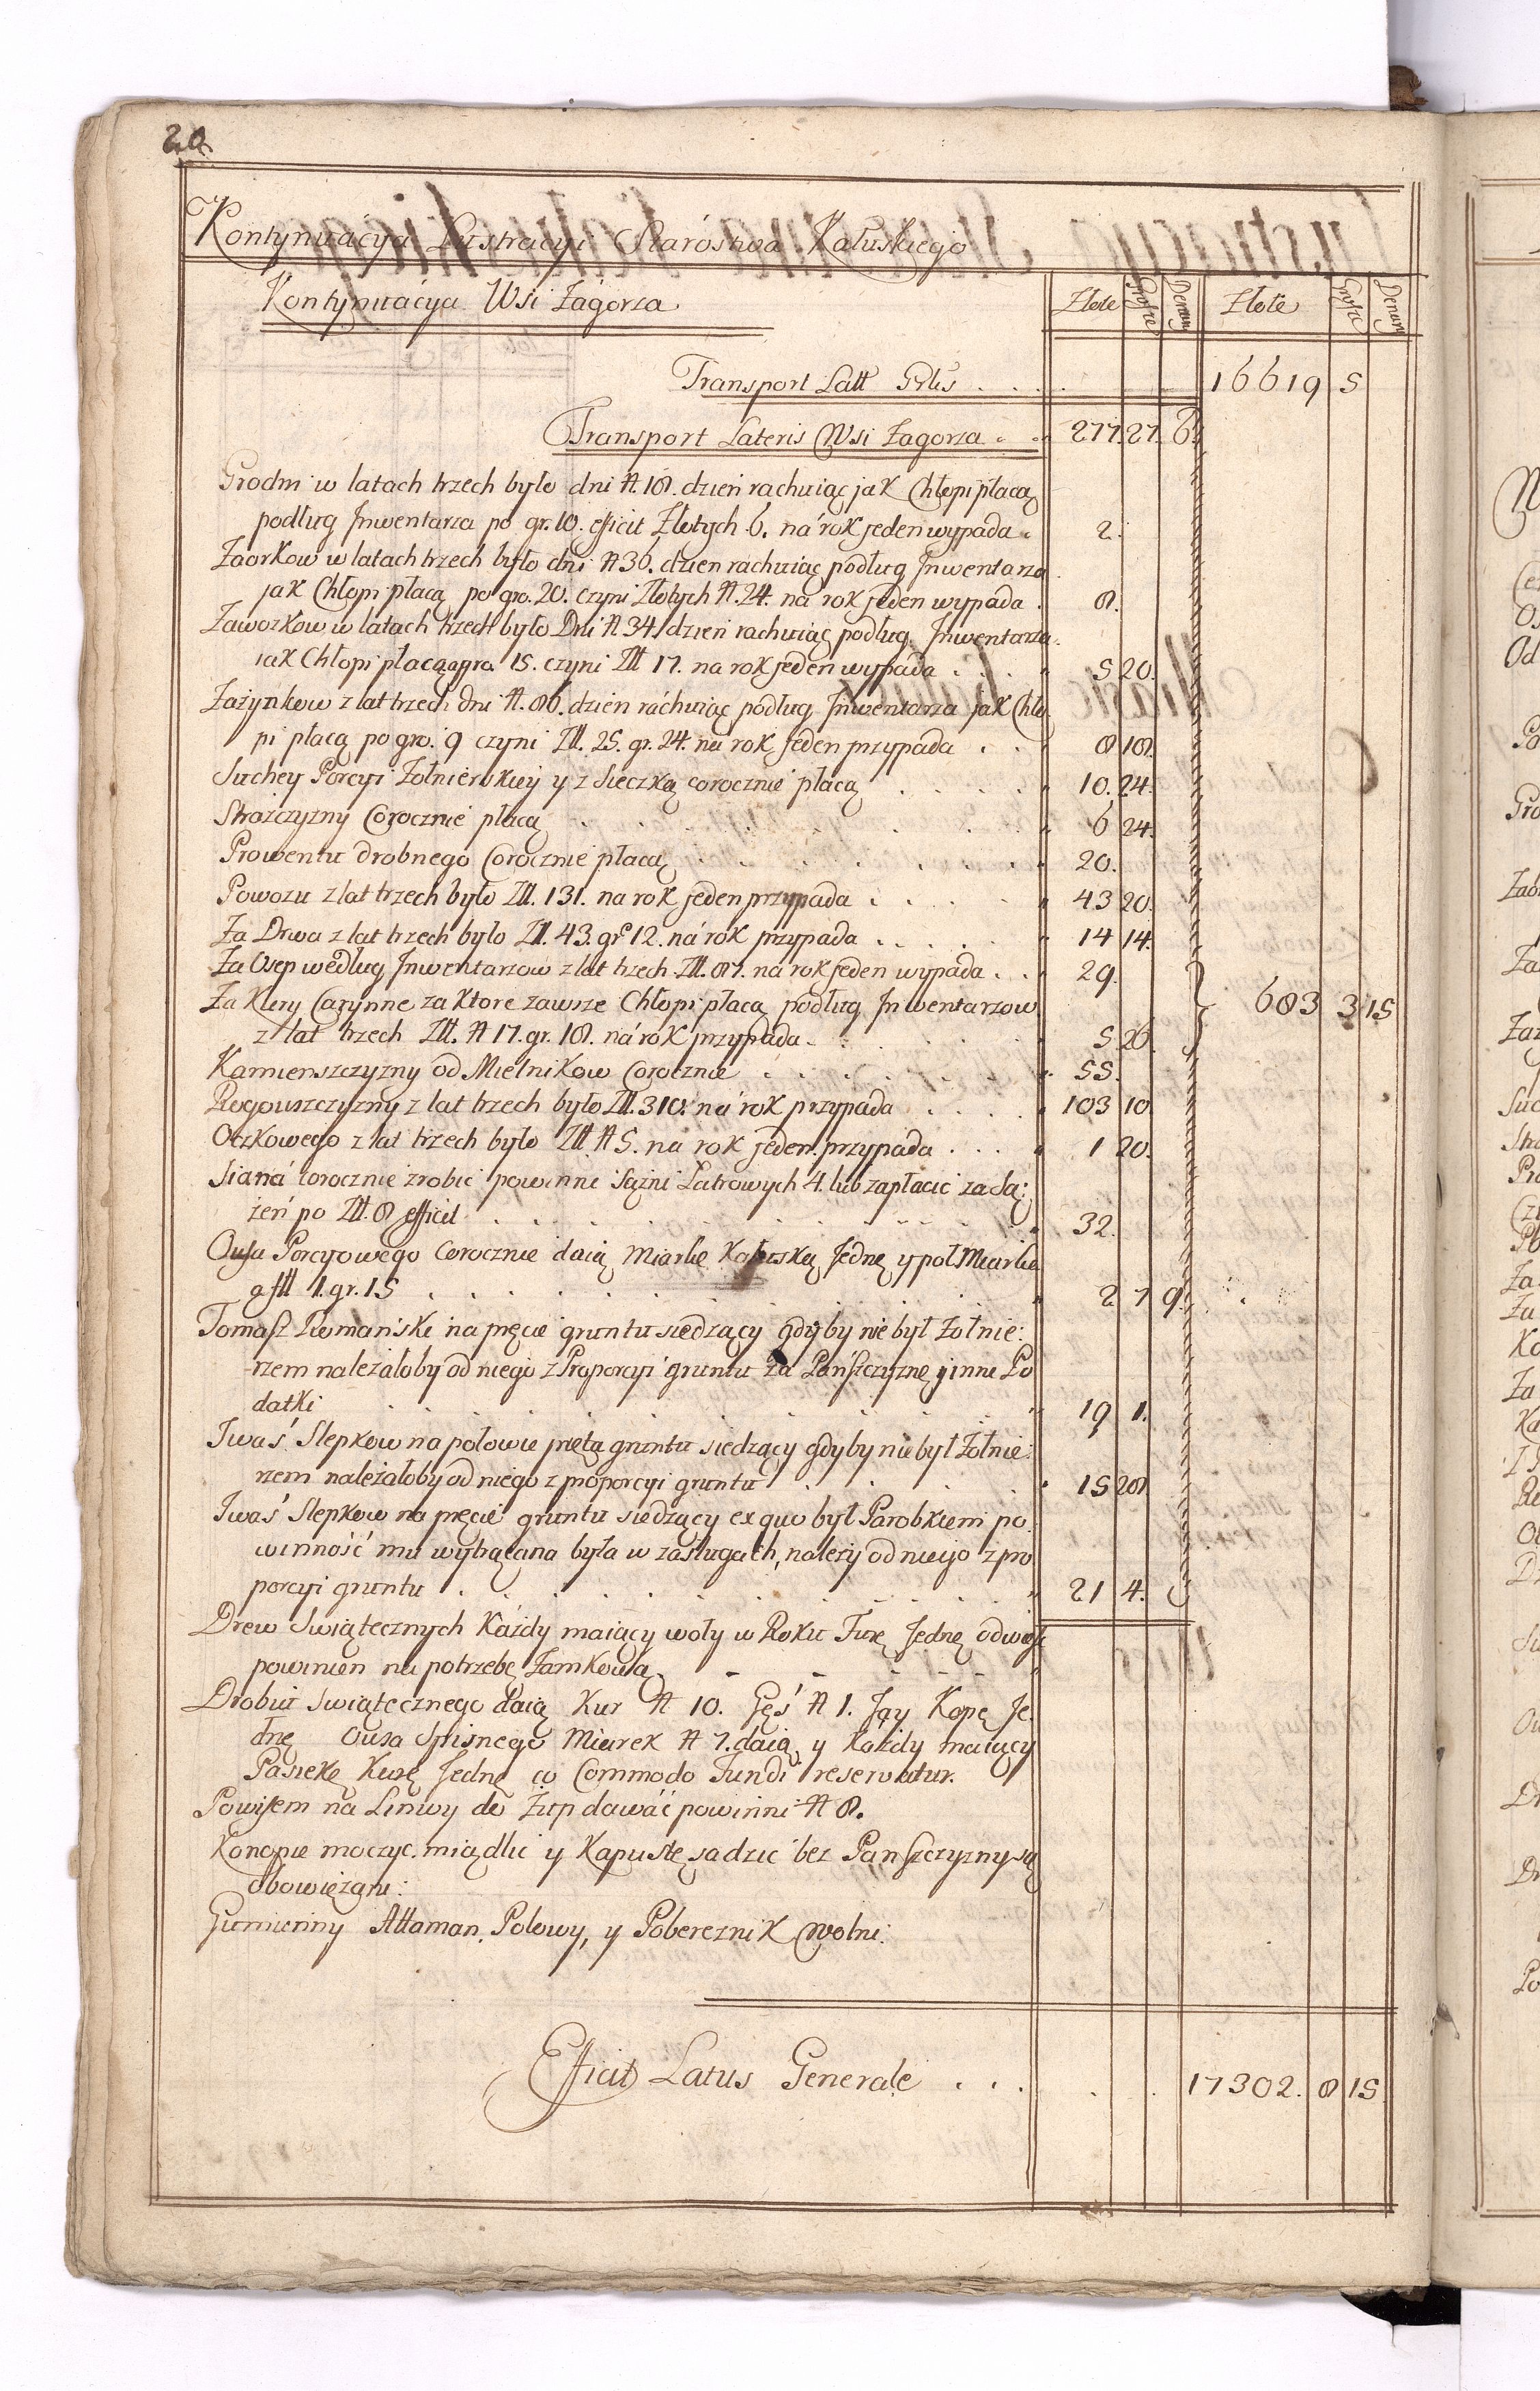 20.
Kontynuácya Lustracyi Stárostwa Kałuskiego
Kontynuácya Wsi Zágorza Złote Grosze Denary Złote Grosze Denary
Transport Latt Grlis . . . 16619 5
Transport Lateris Wsi Zagorza . . 277 27. 6.
Grodzi w latach trzech było dni N. 18. dzień rachuiąc jak Chłopi płacą
podług Jnwentarza po gr. 10. efficit Złotych 6. ná rok jeden wypada . 2.
Zaorkow w latach trzech było dni N 36. dzien rachuiąc podług Jnwentarza
jak Chłopi płacą po gro. 20. czyni Złotych N. 24. na rok jeden wypada . 8.
Zawozkow w latach trzech było Dni N 34. dzien rachuiąc podług Jnwentarza
iak Chłopi płacą a gro 15. czyni Zll 17. na rok jeden wypada . . . 5 20.
Zażynkow z lat trzech dni N. 86. dzien ráchuiąc pódług Jnwentarza jak Chło
pi płacą po gro. 9 czyni Zll. 25. gr. 24. na rok jeden przypada . . 8 18.
Suchey Porcyi Żołnierskiey y z Sieczką corocznie płacą . . . . 10. 24.
Strożczyzny Corocznie płacą . . . . . 6 24.
Prowentu drobnego Corocznie płacą . . . . . 20.
Powozu z lat trzech było Zll. 131. na rok jeden przypada . . . . 43 20.
Za Drwa z lat trzech było Zll. 43. gro 12. ná rok przypada . . . . 14 14.
Za Osep według Jnwentarzow z lat trzech Zll. 87. na rok jeden wypada . . 29.
Za Kury Carynne za ktore zawsze Chłopi płacą podług Jnwentarzow 683 3 15
z lat trzech Zll. N 17. gr. 18. ná rok przypada . . . . 5 26
Kamienszczyzny od Mielnikow Corocznie . . . . . 55.
Rogowszczyzny z lat trzech było Zll. 310. ná rok przypada . . . . 103 10
Oczkowego z lat trzech było Zll N 5. na rok jeden przypada . . . 1 20.
Siana corocznie zrobic powinni Sążni Łatrowych 4. lub zapłacic za Są:
żeń po Zll. 8 efficit . . . . . 32.
Owsa Porcyowego Corocznie daią Miarkę Kałuską Jednę y poł Miarki
a fll 1. gr. 15 . . . . . 2 7 9
Tomasz Romański na pręcie gruntu siedzący gdyby nie był Żołnie:
rzem należałoby od niego z Proporcyi gruntu za Pańszczyznę y inne Po
datki . . . . . 19 1.
Jwaś Slepkow na połowie pręta gruntu siedzący gdyby nie był Żołnie:
rzem należałoby od niego z proporcyi gruntu . . . . 15 28
Jwaś Slepkow na pręcie gruntu siedzący ex quo był Parobkiem po
winność mu wytrącana była w zasługach, należy od niego z pro
porcyi gruntu . . . . . 21 4.
Drew Swiątecznych Każdy maiący woły w Roku Furę Jednę odwieść
powinien na potrzebę Zamkową.
Drobiu Swiątecznego daią Kur N 10. Gęś N 1. Jay Kopę Je
dnę Owsa Spisnego Miarek N 7. daią, y Każdy maiący
Pasiekę Kurę Jednę co Commodo Fundi reservatur.
Powisem na Linwy do Żup dawáć powinni N 8.
Konopie moczyc. miądlic y Kapustę sadzic bez Panszczyzny są
obowiązani:
Gumienny Attaman, Polowy, y Pobereznik wolni:
Efficit Latus Generale . . . 17302. 8 15